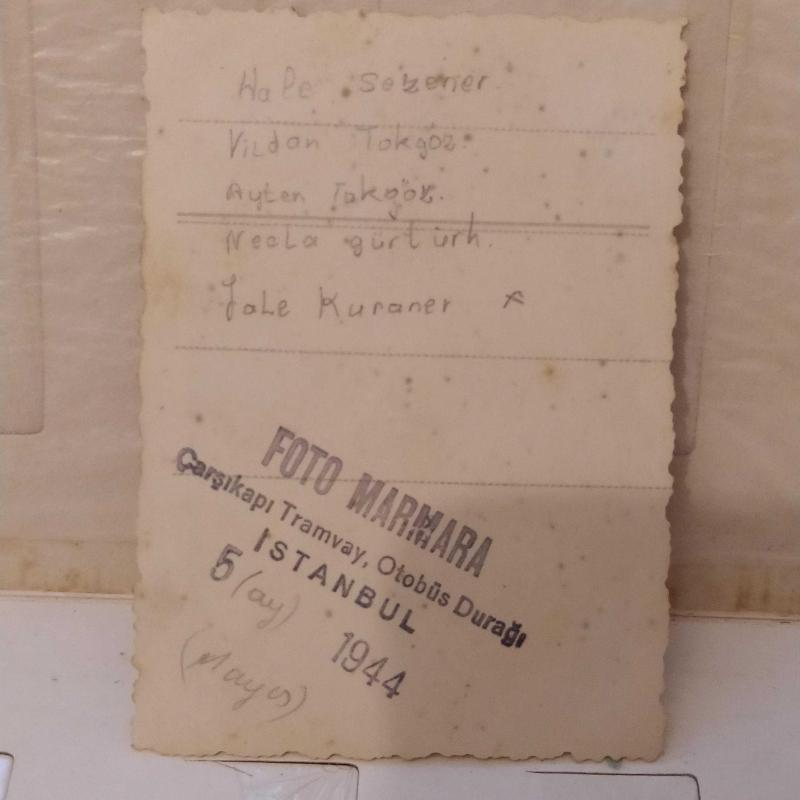 Hale Sezener
Vildan Tokgöz.
Ayten Tokgöz.
Necla gürtürk.
Jale Kuraner x
FOTO MARMARA
Çarşıkapı Tramvay, Otobüs Durağı
İSTANBUL
5 (ay) 1944
(Mayıs)